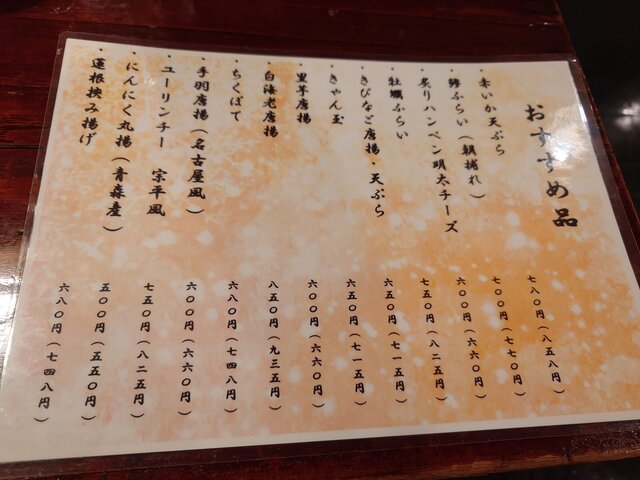 おすすめ品
・赤いか天ぷら 七八〇円(八五八円)
・鯵ふらい(朝捕れ) 七〇〇円(七七〇円)
・炙りハンペン明太チーズ 六〇〇円(六六〇円)
・牡蠣ふらい 七五〇円(八二五円)
・きびなご唐揚・天ぷら 六五〇円(七一五円)
・きゃん玉 六五〇円(七一五円)
・里芋唐揚 六〇〇円(六六〇円)
・白海老唐揚 八五〇円(九三五円)
・ちくぽて 六八〇円(七四八円)
・手羽唐揚(名古屋風) 六〇〇円(六六〇円)
・ユーリンチー 宗平風 七五〇円(八二五円)
・にんにく丸揚(青森産) 五〇〇円(五五〇円)
・蓮根挟み揚げ 六八〇円(七四八円)